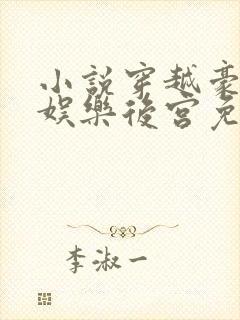 小説穿越豪
娛樂後宮免
李淑一